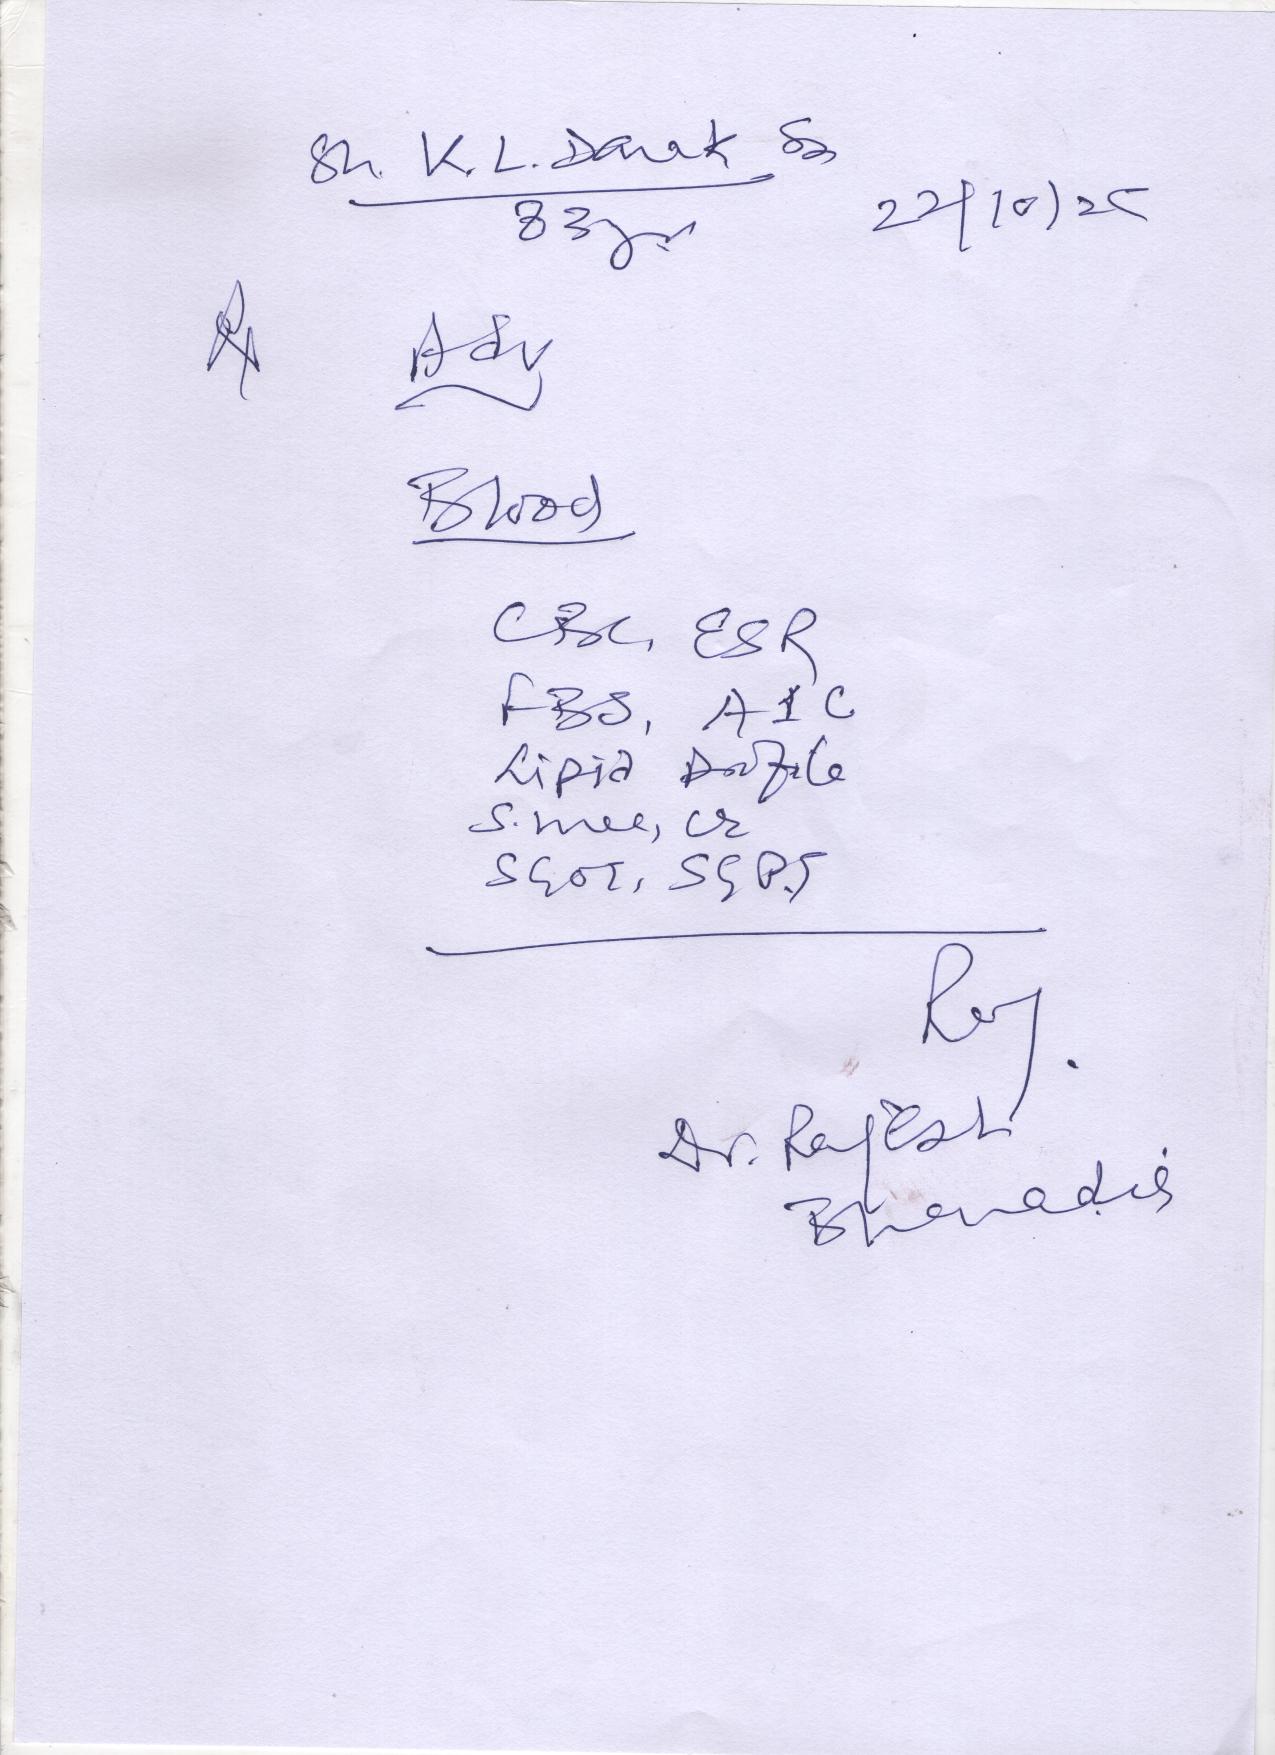 Sh. K. L. Darak Sa
83 yrs
22/10/25
Rx Adv
Blood
CBC, ESR
FBS, A1C
Lipid Profile
S. Urea, Cr
SGOT, SGPT
Raj.
Dr. Rajesh